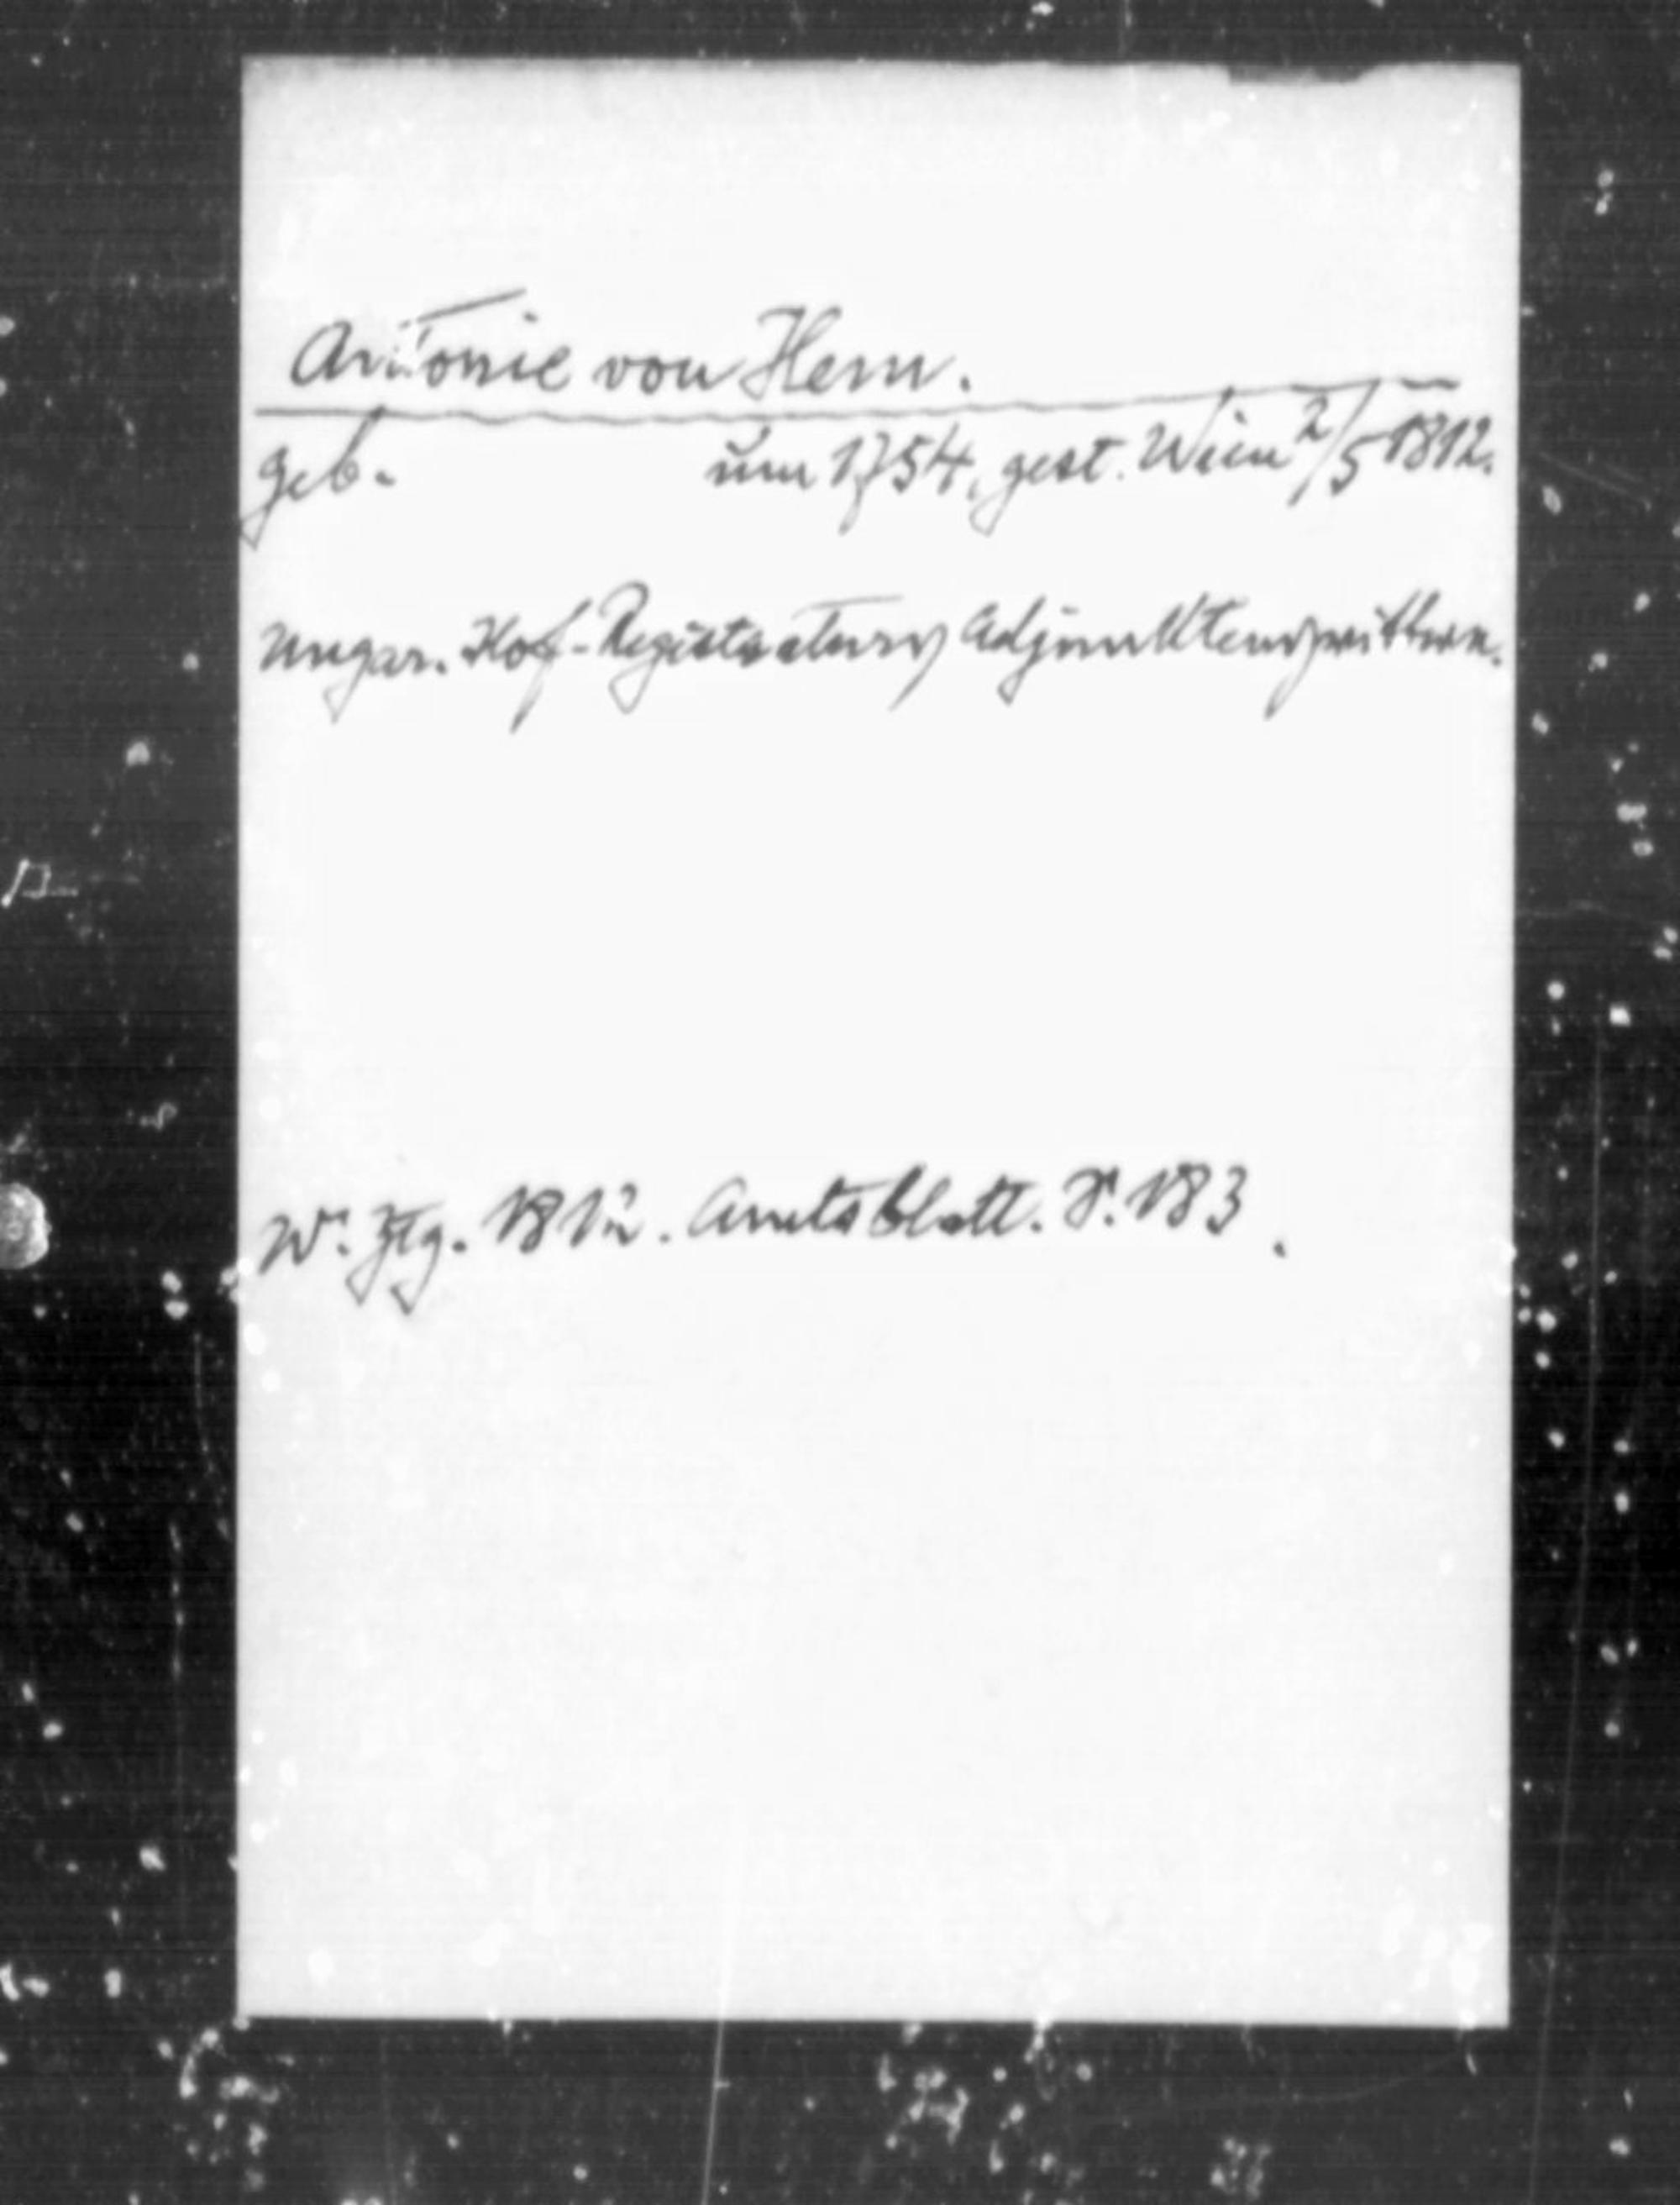 Antonie von Hem.
geb. um 1754, gest. Wien 2/5 1812.
Ungar. Hof-Registraturs Adjunktenswittwe.
Wr. Ztg. 1812. Amtsblatt. S. 183.